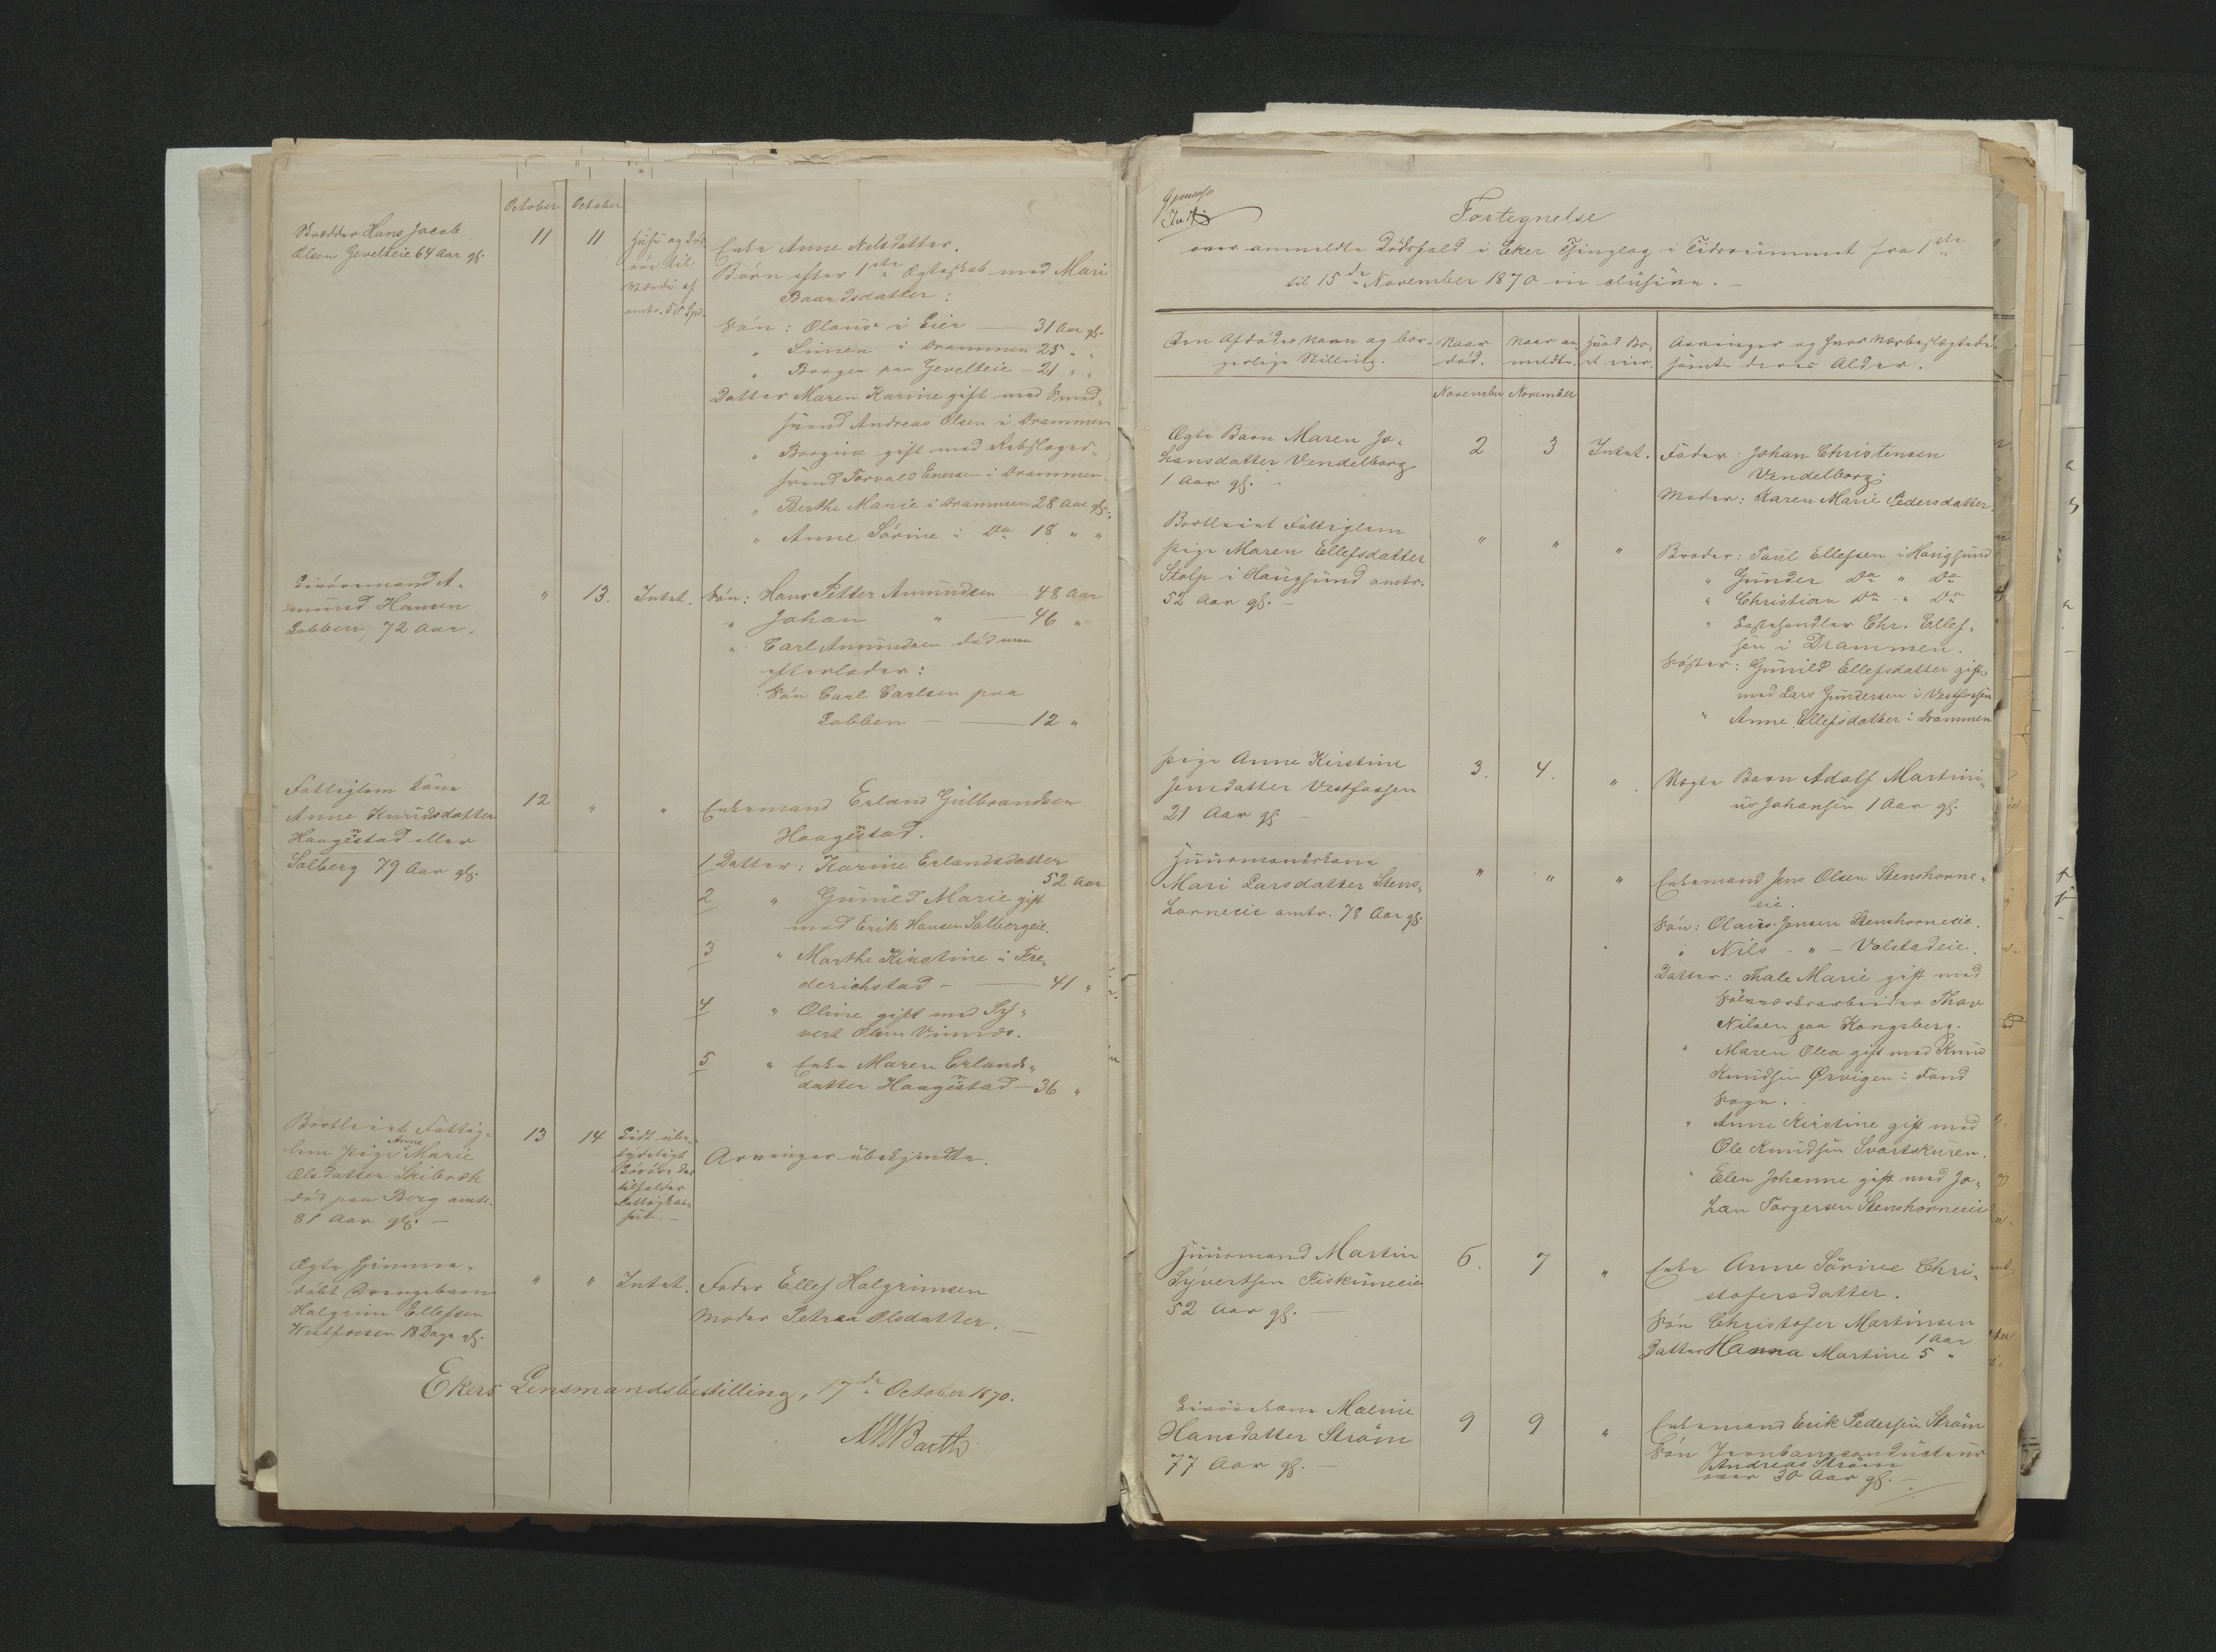 October October
Skrædder Hans Jacob
Olsen Gevelteie 64 Aar gl.
11 11
Huse og Løs-
öre til
Værdi af
omtr. 50 Spd.
Enke Anne Nilsdatter.
Børn efter 1ste Ægteskab med Mari
Baardsdatter:
Søn: Olaus i Eier — 31 Aar gl.
" Simen i Drammen 25 " "
" Borger paa Gevelteie — 21 " "
Datter Maren Karine gift med Smed-
svend Andreas Olsen i Drammen
" Borgine gift med Rebslager-
svend Torvald Enersen i Drammen
" Berthe Marie i Drammen 28 Aar gl.
" Anne Sörine i Do 18 " "
Livöremand A-
mund Hansen
Lobben, 72 Aar.
" 13. Intet.
Søn: Hans Petter Amundsen — 48 Aar
" Johan " — 46 "
" Carl Amundsen död men
efterlader:
Søn Carl Carlsen paa
Lobben — 12 "
Fattiglem Kone
Anne Knudsdatter
Haagenstad eller
Solberg 79 Aar gl.
12 " "
Enkemand Erland Gulbrandsen
Haagenstad.
1 Datter: Karine Erlandsdatter
52 Aar
2 " Gunild Marie gift
med Erik Hansen Solbergeie.
3 " Marthe Kirstine i Fre-
derichstad — 41 "
4 " Oline gift med Sy-
vert Vinnæs.
5 " Enke Maren Erlands-
datter Haagenstad — 36 "
Bortleiet Fattig-
lem Pige Anne Marie
Olsdatter Skibræk
död paa Berg omtr.
81 Aar gl. —
13 14
Lidt ube-
tydeligt
Lösöre der
tilfalder
Fattigkas-
sen. —
Arvinger ubekjendte.
Ægte Hjemme-
döbt Drengebarn
Halgrim Ellefsen
Westfossen 18 Dage gl.
" " Intet.
Fader Ellef Halgrimsen
Moder Petrea Olsdatter. —
Ekers Lensmandsbestilling, 17de October 1870.
Barth
Fortegnelse
over anmeldte Dödsfald i Eker Thinglag i Tidsrummet fra 1ste
til 15de November 1870 inclusive. —
Den Afdödes Navn og bor-
gerlige Stilling.
Naar
död.
Naar an-
meldte.
Hvad Bo-
et eier.
Arvinger og hvor Nærbeslægtede
samt deres Alder.
November November
Ægte Barn Maren Jo-
hansdatter Vendelborg
1 Aar gl. —
2 3 Intet.
Fader: Johan Christensen
Vendelborg.
Moder: Karen Marie Pedersdatter.
Bortleiet Fattiglem
Pige Maren Ellefsdatter
Stolp i Haugsund omtr.
52 Aar gl. —
" " "
Broder: Paul Ellefsen i Haugsund
" Gunder Do " Do
" Christian Do " Do
" Chr. Ellef-
sen i Drammen.
Söster: Gunild Ellefsdatter gift
med Lars Gundersen i Vestfossen
" Anne Ellefsdatter i Drammen
Pige Anne Kirstine
Jensdatter Vestfossen
21 Aar gl. —
3. 4. "
Uægte Barn Adolf Martini-
us Johansen 1 Aar gl.
Huusmandskone
Mari Larsdatter Stens-
horneeie omtr. 78 Aar gl.
" " "
Enkemand Jens Olsen Stenshorne-
eie.
Søn: Olaus Jensen Stenshorneeie.
" Nils " — Volstadeie.
Datter: Thale Marie gift med
Sölvværksarbeider Thor
Nilsen paa Kongsberg.
" Maren Olea gift med Knud
Knudsen Ørvigen i Sand
Sogn.
" Anne Kirstine gift med
Ole Knudsen Svartskuren.
" Elen Johanne gift med Jo-
han Torgersen Stenshorneeie
Huusmand Martin
Syvertsen Fiskumeeie
52 Aar gl. —
6. 7 "
Enke Anne Sörine Chri-
stofersdatter.
Søn Christofer Martinsen
1 Aar
Datter Hanna Martine 5 "
Livörekone Malene
Hansdatter Ström
77 Aar gl. —
9 9 "
Enkemand Erik Pedersen Ström
Søn Jernbaneconducteur
Andreas Ström
over 30 Aar gl. —